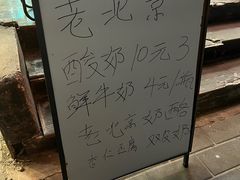 老北京
酸奶10元3
鲜牛奶 4元/
老北京奶酪
杏仁豆腐 双皮奶